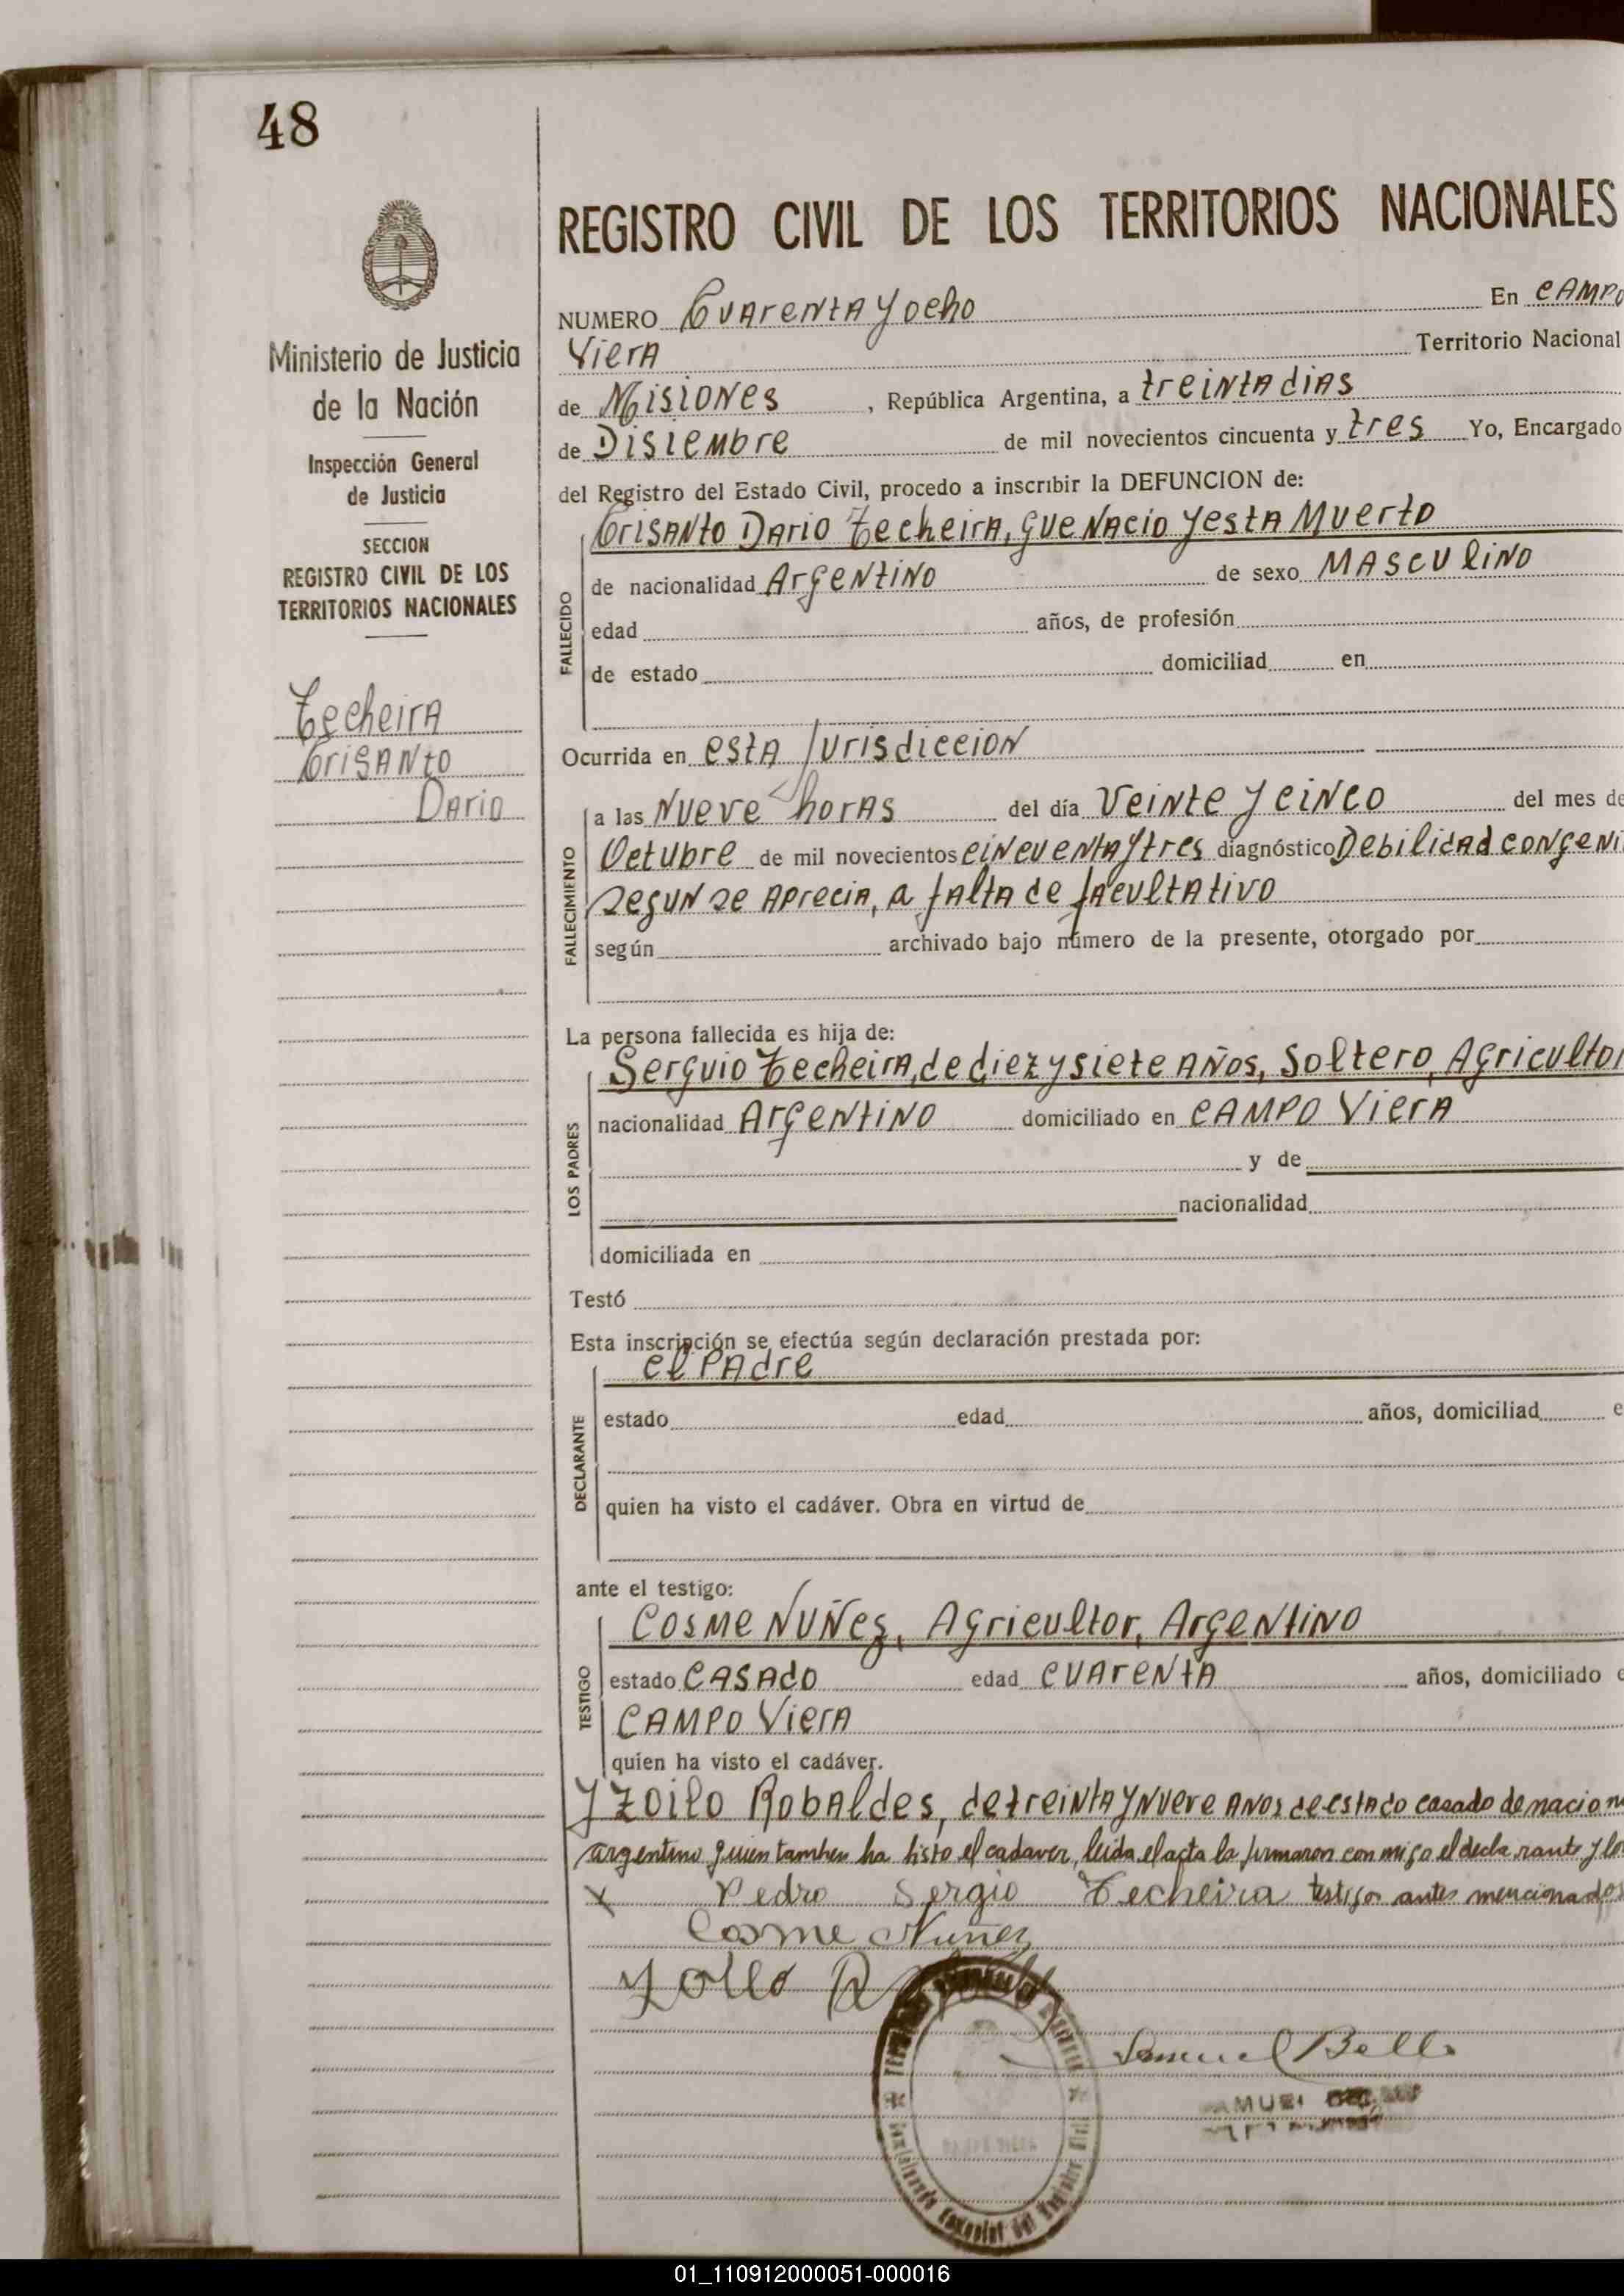 48
REGISTRO CIVIL DE LOS TERRITORIOS NACIONALES
Ministerio de Justicia
de la Nación
Inspección General
de Justicia
SECCION
REGISTRO CIVIL DE LOS
TERRITORIOS NACIONALES
Techeira
Crisanto
Dario
NUMERO Cuarenta y ocho En Campo
Viera Territorio Nacional
de Misiones , República Argentina, a treinta dias
de Disiembre de mil novecientos cincuenta y tres Yo, Encargado
del Registro del Estado Civil, procedo a inscribir la DEFUNCION de:
Crisanto Dario Techeira, que nacio y esta muerto
FALLECIDO
de nacionalidad Argentino de sexo masculino
edad años, de profesión
de estado domiciliad en
Ocurrida en esta Jurisdiccion
FALLECIMIENTO
a las nueve horas del día veinte y cinco del mes de
Octubre de mil novecientos cincuenta y tres diagnóstico Debilidad congeni
segun se aprecia, a falta de facultativo
según archivado bajo número de la presente, otorgado por
La persona fallecida es hija de:
LOS PADRES
Serguio Techeira, de diez y siete años, Soltero, Agricultor
nacionalidad Argentino domiciliado en Campo Viera
y de
nacionalidad
domiciliada en
Testó
Esta inscripción se efectúa según declaración prestada por:
DECLARANTE
el Padre
estado edad años, domiciliad e
quien ha visto el cadáver. Obra en virtud de
ante el testigo:
TESTIGO
Cosme Nuñez, Agricultor, Argentino
estado casado edad cuarenta años, domiciliado e
Campo Viera
quien ha visto el cadáver.
y Zoilo Robaldes, de treinta y nueve anos de estado casado de nacion
argentino quien tambien ha bisto el cadaver, leida el acta la firmaron con migo el declarante y los
x Pedro Sergio Techeira testigos antes mencionados
Cosme Nuñez
Samuel Bello
01_110912000051-000016